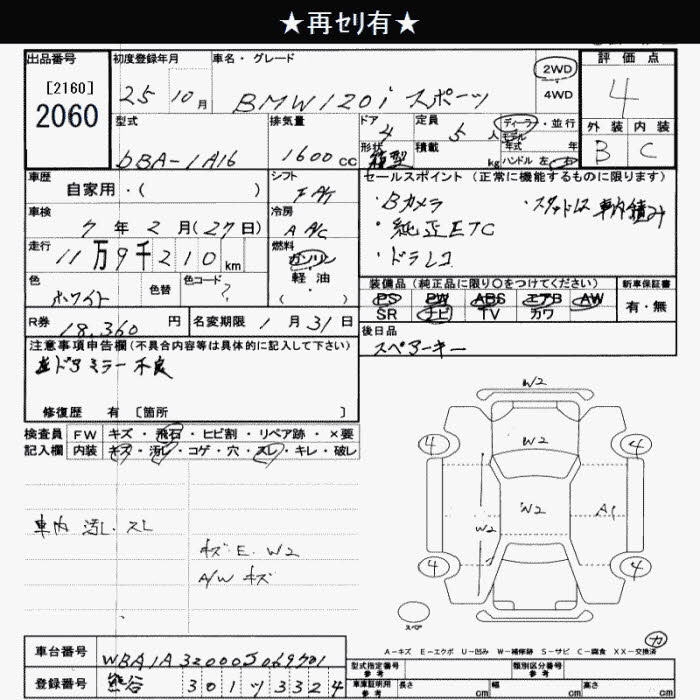 ★再セリ有★
出品番号 初度登録年月 車名・グレード 評価点
[2160]
2060
25 10月 BMW120i スポーツ
2WD
4WD
4
型式 排気量 ドア 定員 ディーラー・並行
DBA-1A16 1600cc 4 5人 モデル年式 年
外装 内装
形状 積載 kg ハンドル 左・右
箱型
B C
車歴 シフト セールスポイント (正常に機能するものに限ります)
自家用・( ) F A/T
・Bカメラ ・スタッドレス車内積み
車検 冷房
7年2月(27日) A A/C
・純正ETC
走行 燃料
11万9千210km ガソリン
・ドラレコ
軽油
・
( )
色 色替 色コード
ホワイト ?
装備品 (純正品に限り○をつけてください) 新車保証書
PS PW ABS エアB AW
SR ナビ TV カワ
有・無
R券 18,360円 名変期限 1月31日
後日品
スペアーキー
注意事項申告欄(不具合内容等は具体的に記入して下さい)
ドアミラー不良
修復歴 有 [箇所 ]
検査員 FW キズ・飛石・ヒビ割・リペア跡・×要
記入欄 内装 キズ・汚レ・コゲ・穴・スレ・キレ・破レ
車内 汚レ.スレ
キズE.W2
A/Wキズ
W2
4 W2 4
W2 W2 A1
4 4
スペア
カ
A-キズ E-エクボ U-凹み W-補修跡 S-サビ C-腐食 XX-交換済
車台番号 WBA1A32000J069701
登録番号 熊谷 301 ツ 3324
型式指定番号 参考 類別区分番号 参考
車庫証明用 参考 長さ cm 幅 cm 高さ cm